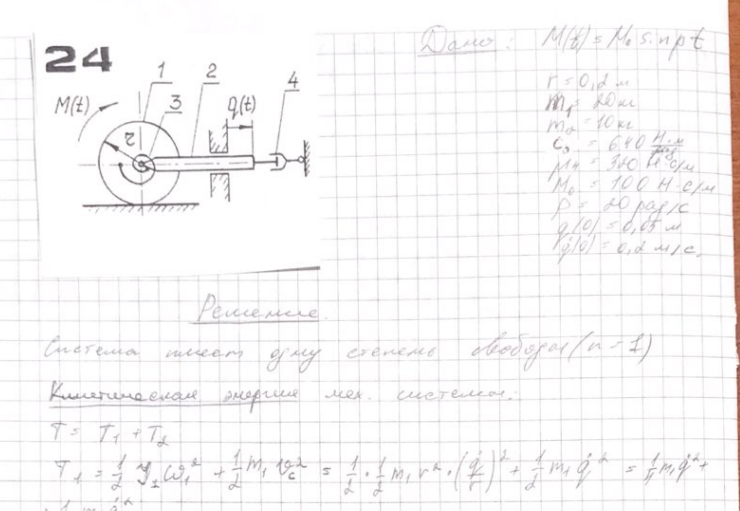 24
Дано: M(t) = M₀ sin pt
1 2 4
M(t) 3 q(t)
r
r = 0,2 м
m₁ = 20 кг
m₂ = 10 кг
c₃ = 640
μ₄ = 300 Н·с/м
M₀ = 100 Н·с/м
p = 20 рад/с
q(0) = 0,05 м
q̇(0) = 0,2 м/с.
Решение.
Система имеет одну степень свободы (n = 1)
Кинетическая энергия мех. системы:
T = T₁ + T₂
T₁ = 1/2 J₁ω₁² + 1/2 m₁ v_c² = 1/2 · 1/2 m₁ r² · (q̇/r)² + 1/2 m₁ q̇² = 1/4 m₁ q̇² +